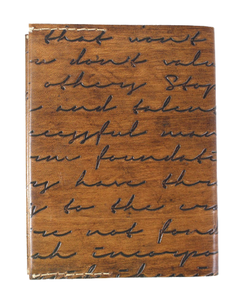 that won't
u don't valu
others Stop
e and talen
ccessful man
rm foundati
y have thr
y to the cr
re not fond
ah incorpo